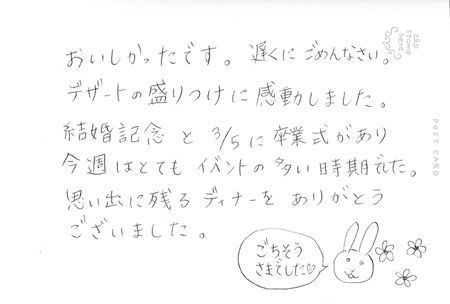 stamp
here
おいしかったです。遅くにごめんなさい。
デザートの盛りつけに感動しました。
結婚記念と3/5に卒業式があり
今週はとてもイベントの多い時期でした。
思い出に残るディナーをありがとう
ございました。
ごちそう
さまでした♡
POST CARD